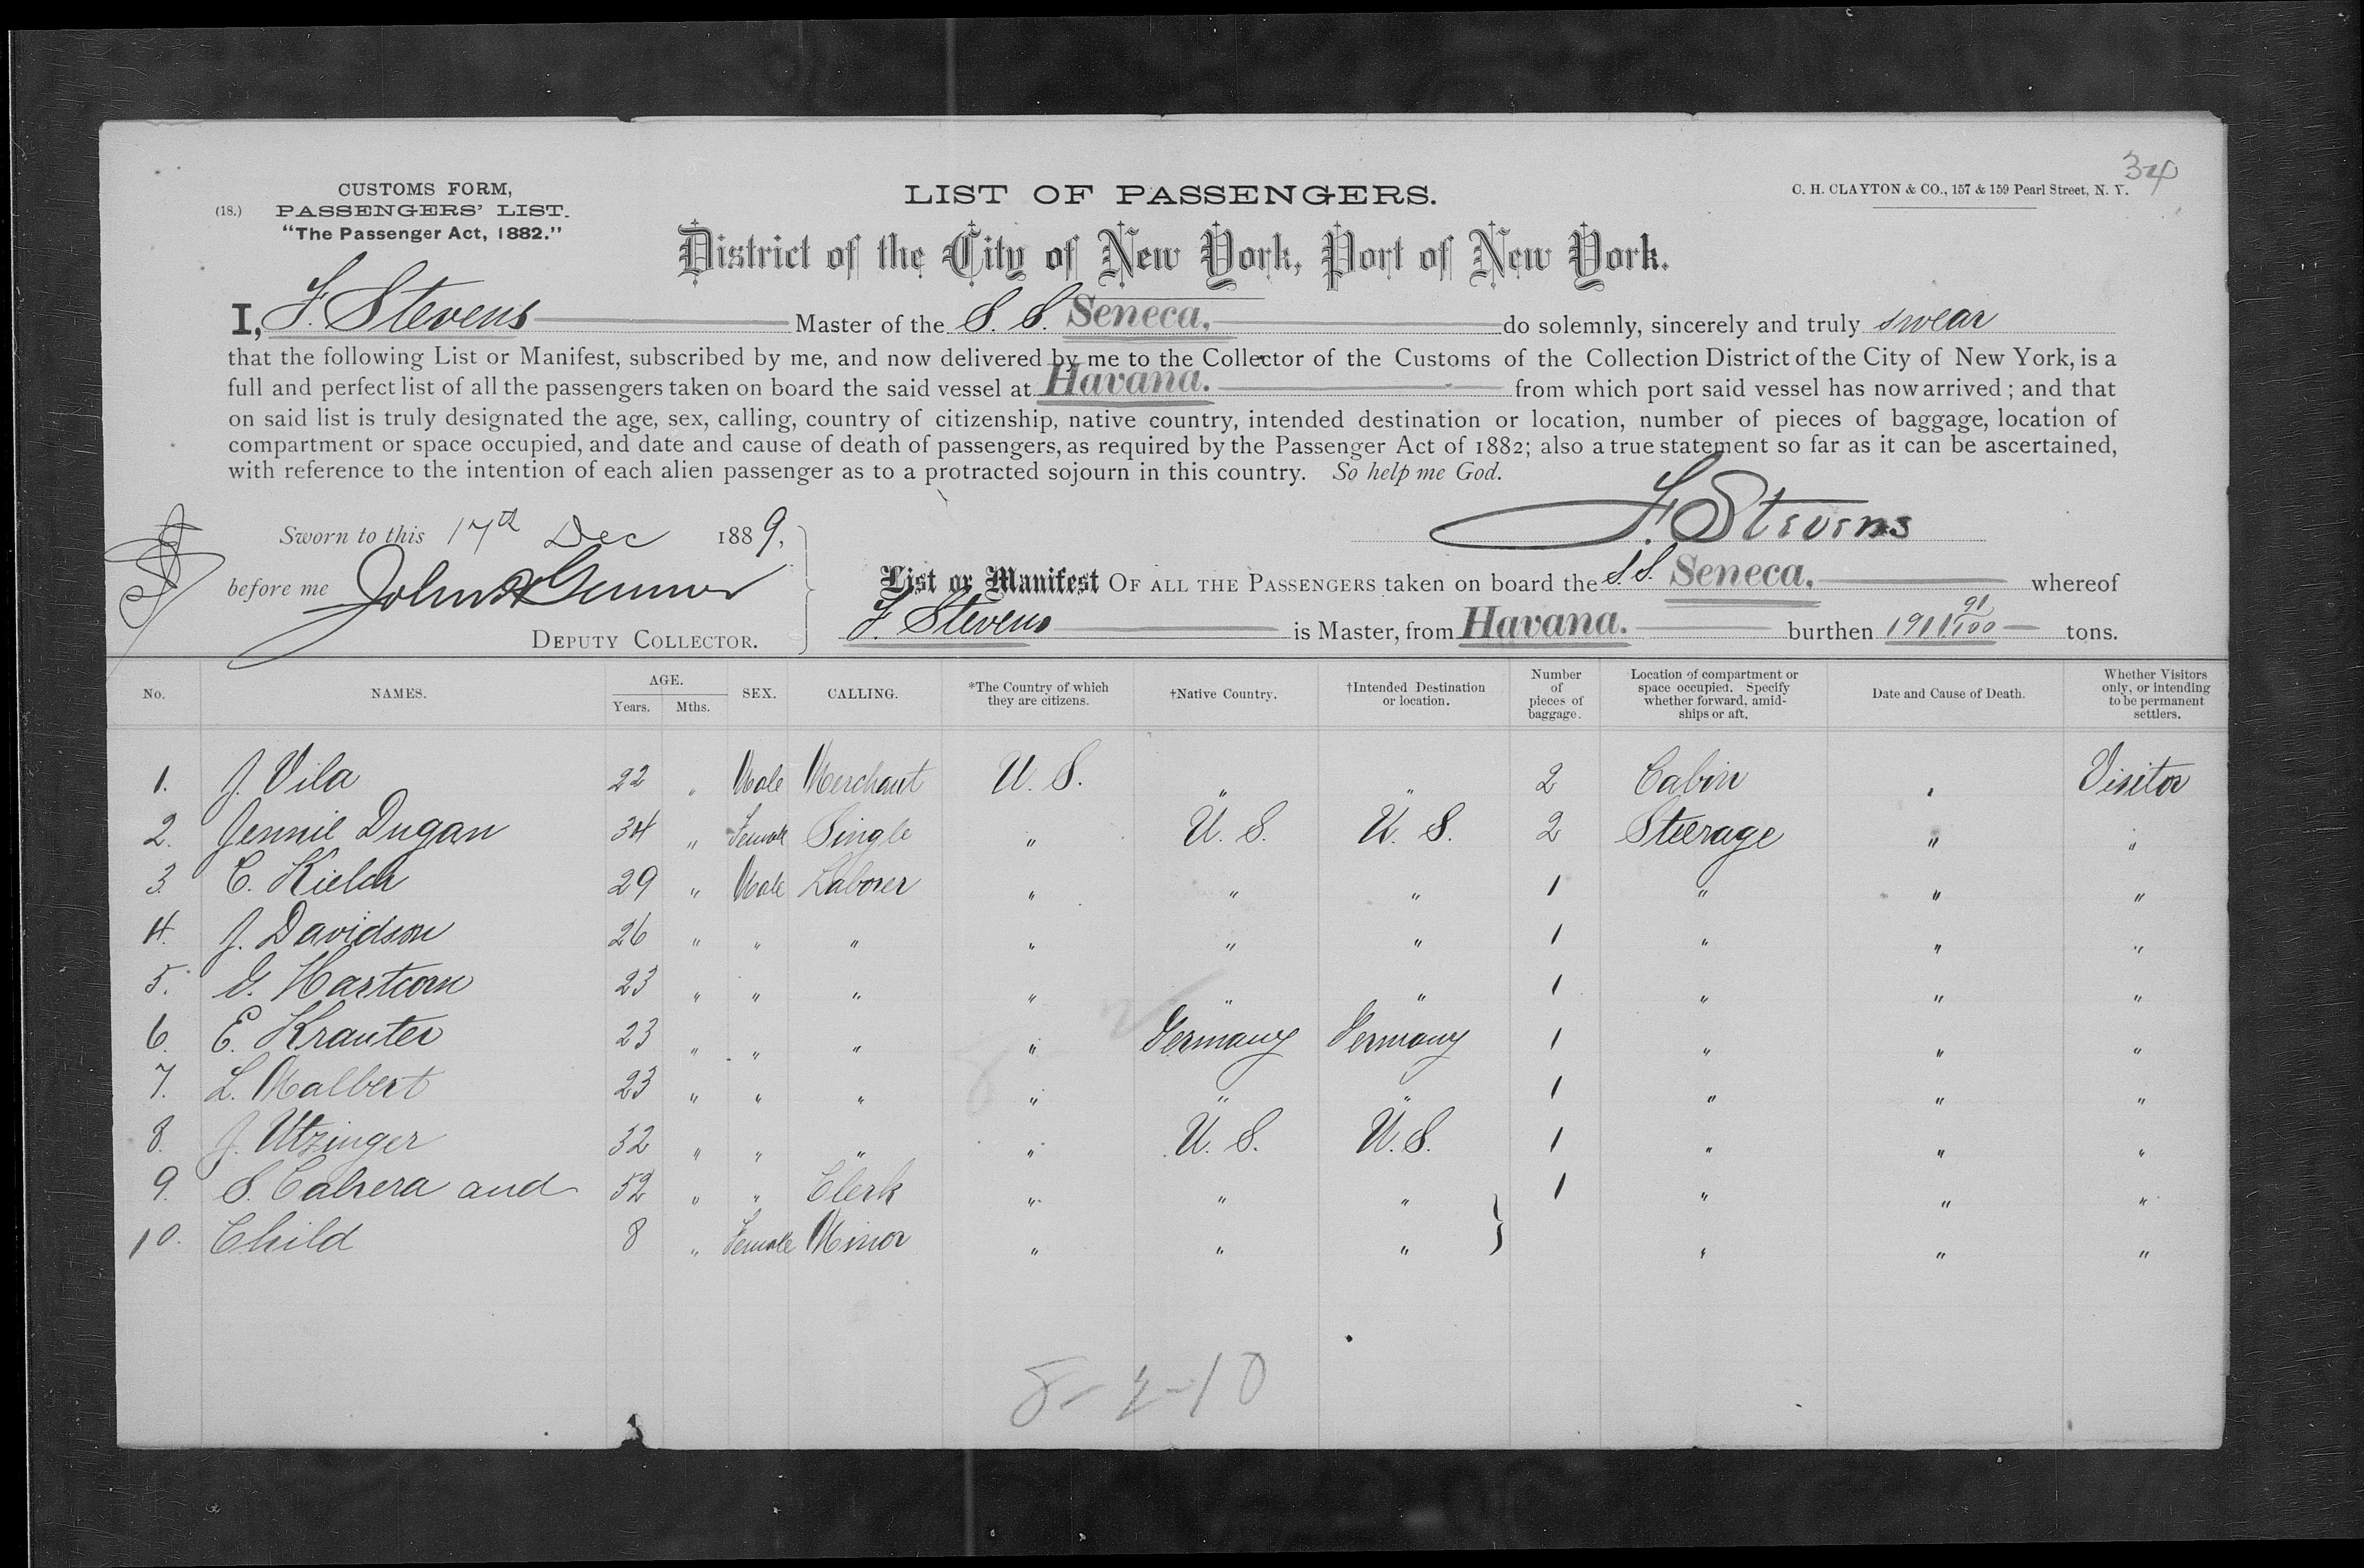 34
CUSTOMS FORM,
(18.) PASSENGERS' LIST.
"The Passenger Act, 1882."
LIST OF PASSENGERS.
C. H. CLAYTON & CO., 157 & 159 Pearl Street, N. Y.
District of the City of New York, Port of New York.
I, F. Stevens Master of the S. S. Seneca, do solemnly, sincerely and truly swear
that the following List or Manifest, subscribed by me, and now delivered by me to the Collector of the Customs of the Collection District of the City of New York, is a
full and perfect list of all the passengers taken on board the said vessel at Havana. from which port said vessel has now arrived; and that
on said list is truly designated the age, sex, calling, country of citizenship, native country, intended destination or location, number of pieces of baggage, location of
compartment or space occupied, and date and cause of death of passengers, as required by the Passenger Act of 1882; also a true statement so far as it can be ascertained,
with reference to the intention of each alien passenger as to a protracted sojourn in this country. So help me God.
F. Stevens
Sworn to this 17th Dec 1889,
before me John
DEPUTY COLLECTOR.
List or Manifest OF ALL THE PASSENGERS taken on board the S.S. Seneca, whereof
F. Stevens is Master, from Havana. burthen 1911 91/100 tons.
No. NAMES. AGE. Years. Mths. SEX. CALLING. *The Country of which they are citizens. †Native Country. †Intended Destination or location. Number of pieces of baggage. Location of compartment or space occupied. Specify whether forward, amidships or aft. Date and Cause of Death. Whether Visitors only, or intending to be permanent settlers.
1. J. Vila 22 " Male Merchant U. S. " " 2 Cabin " Visitor
2. Jennie Dugan 34 " Female Single " U. S. U. S. 2 Steerage " "
3. C. Kielch 29 " Male Laborer " " " 1 " " "
4. J. Davidson 26 " " " " " " 1 " " "
5. G. Hartcorn 23 " " " " " " 1 " " "
6. E. Krauter 23 " " " " Germany Germany 1 " " "
7. L. Malbert 23 " " " " " " 1 " " "
8. J. Utzinger 32 " " " " U. S. U. S. 1 " " "
9. S. Cabrera and 52 " " Clerk " " " 1 " " "
10. Child 8 " Female Minor " " " " " "
8-2-10